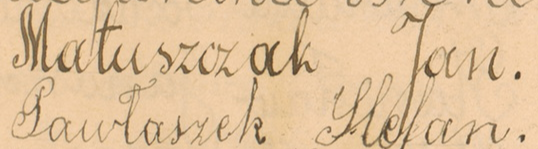 Matuszczak Jan.
Pawłaszek Stefan.